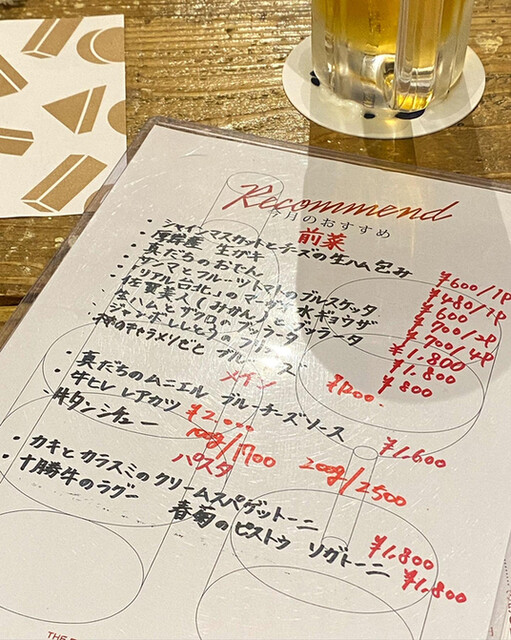 Recommend
今月のおすすめ
前菜
・シャインマスカットとチーズの生ハム包み ¥600/1P
・厚岸産 生ガキ ¥480/1P
・真だちのおでん ¥600
・サンマとフルーツトマトのブルスケッタ ¥700/2P
・リアル台北!のマーサの水ギョウザ ¥700/4P
・佐賀美人(みかん)とブッラータ ¥1.800
ブッラータ ¥1.800
¥800
柿のキャラメリゼと ブルーチーズ ¥1200-
メイン
・真だちのムニエル ブルーチーズソース ¥1,600
・牛ヒレ レアカツ 100g/1700 200g/2500
・牛タンシチュー ¥2000
パスタ
・カキとカラスミのクリームスパゲットーニ ¥1,800
・十勝牛のラグー 春菊のピストゥ リガトーニ ¥1,800